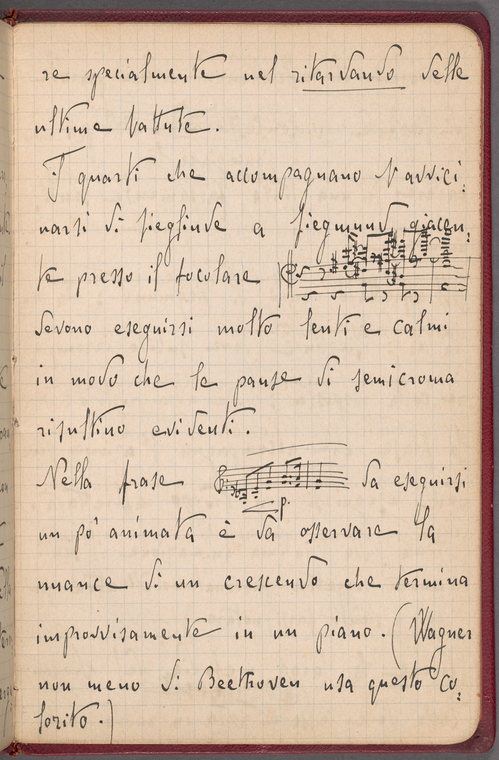 re specialmente nel ritardando delle
ultime battute.
I quarti che accompagnano l'avvici:
narsi di Sieglinde a Siegmund giacen:
te presso il focolare
devono eseguirsi molto lenti e calmi
in modo che le pause di semicroma
risultino evidenti.
Nella frase da eseguirsi
p.
un pò animata è da osservare la
nuance di un crescendo che termina
improvvisamente in un piano. (Wagner
non meno di Beethoven usa questo co:
lorito.)